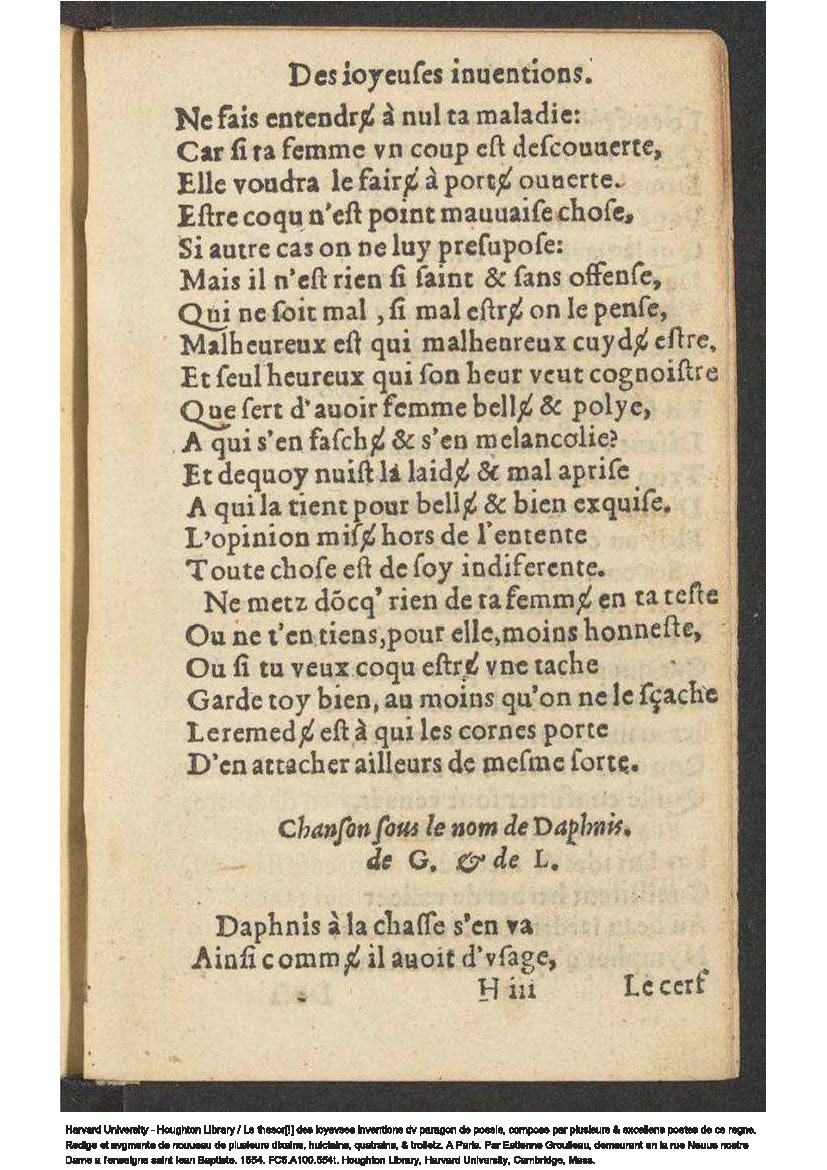 Des ioyeuſes inuentions.
Ne fais entendrɇ à nul ta maladie:
Car ſi ta femme vn coup eſt deſcouuerte,
Elle voudra le fairɇ à portɇ ouuerte.
Eſtre coqu n'eſt point mauuaiſe choſe,
Si autre cas on ne luy preſupoſe:
Mais il n'eſt rien ſi ſaint & ſans offenſe,
Qui ne ſoit mal , ſi mal eſtrɇ on le penſe,
Malheureux eſt qui malheureux cuydɇ eſtre,
Et ſeul heureux qui ſon heur veut cognoiſtre
Que ſert d'auoir femme bellɇ & polye,
A qui s'en faſchɇ & s'en melancolie?
Et dequoy nuiſt la laidɇ & mal apriſe
A qui la tient pour bellɇ & bien exquiſe.
L'opinion miſɇ hors de l'entente
Toute choſe eſt de ſoy indiferente.
Ne metz dõcq' rien de ta femmɇ en ta teſte
Ou ne t'en tiens,pour elle,moins honneſte,
Ou ſi tu veux coqu eſtrɇ vne tache
Garde toy bien, au moins qu'on ne le ſçache
Le remedɇ eſt à qui les cornes porte
D'en attacher ailleurs de meſme ſorte.
Chanſon ſous le nom de Daphnis.
de G. & de L.
Daphnis à la chaſſe s'en va
Ainſi commɇ il auoit d'vſage,
H iii Le cerf
Harvard University - Houghton Library / Le thesor[!] des ioyevses inventions dv paragon de poesie, compose par plusieurs & excellens poetes de ce regne.
Redige et avgmente de nouueau de plusieurs dixains, huictains, quatrains, & triolletz. A Paris. Par Estienne Groulleau, demeurant en la rue Neuue nostre
Dame a l'enseigne saint Iean Baptiste. 1554. FC5.A100.554t. Houghton Library, Harvard University, Cambridge, Mass.